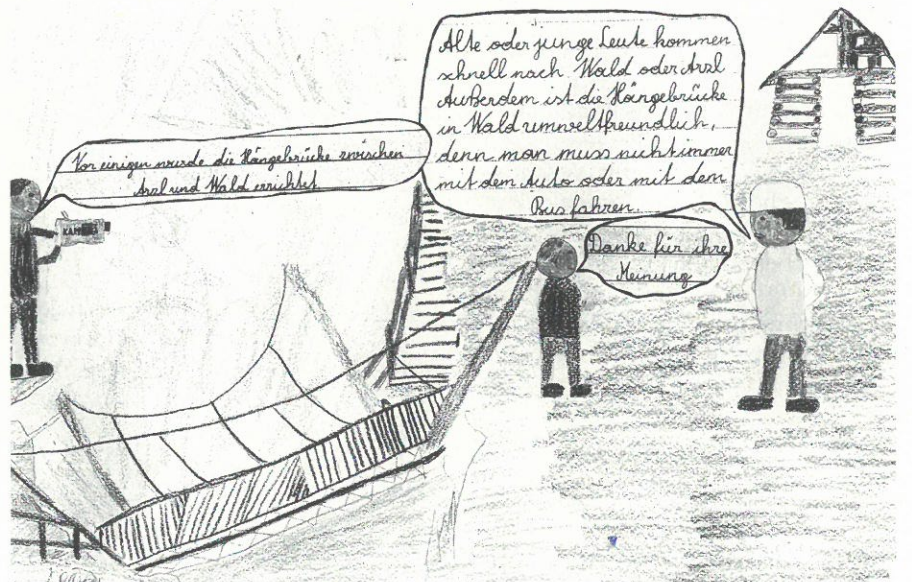 Vor einigen wurde die Hängebrücke zwischen
Arzl und Wald errichtet
KAMERA
Alte oder junge Leute kommen
schnell nach Wald oder Arzl
Außerdem ist die Hängebrücke
in Wald umweltfreundlich,
denn man muss nicht immer
mit dem Auto oder mit dem
Bus fahren.
Danke für ihre
Meinung